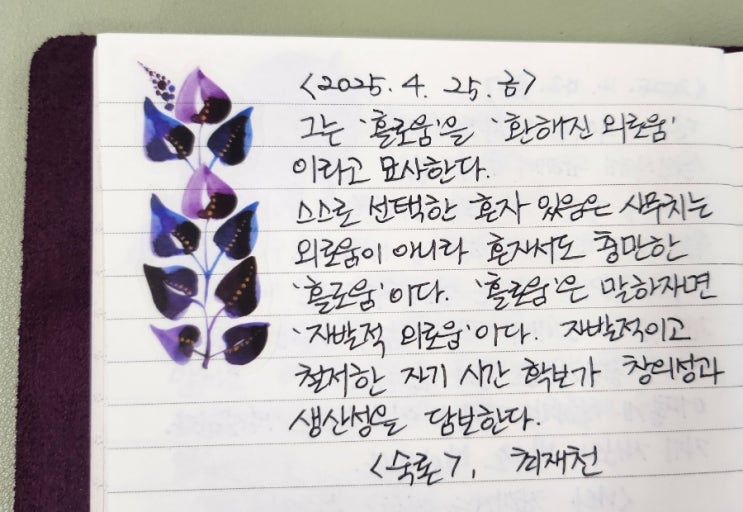 <2025. 4. 25. 금>
그는 '홀로움'을 '환해진 외로움'
이라고 묘사한다.
스스로 선택한 혼자 있음은 사무치는
외로움이 아니라 혼자서도 충만한
'홀로움'이다. '홀로움'은 말하자면
'자발적 외로움'이다. 자발적이고
철저한 자기 시간 확보가 창의성과
생산성을 담보한다.
<숙론>, 최재천